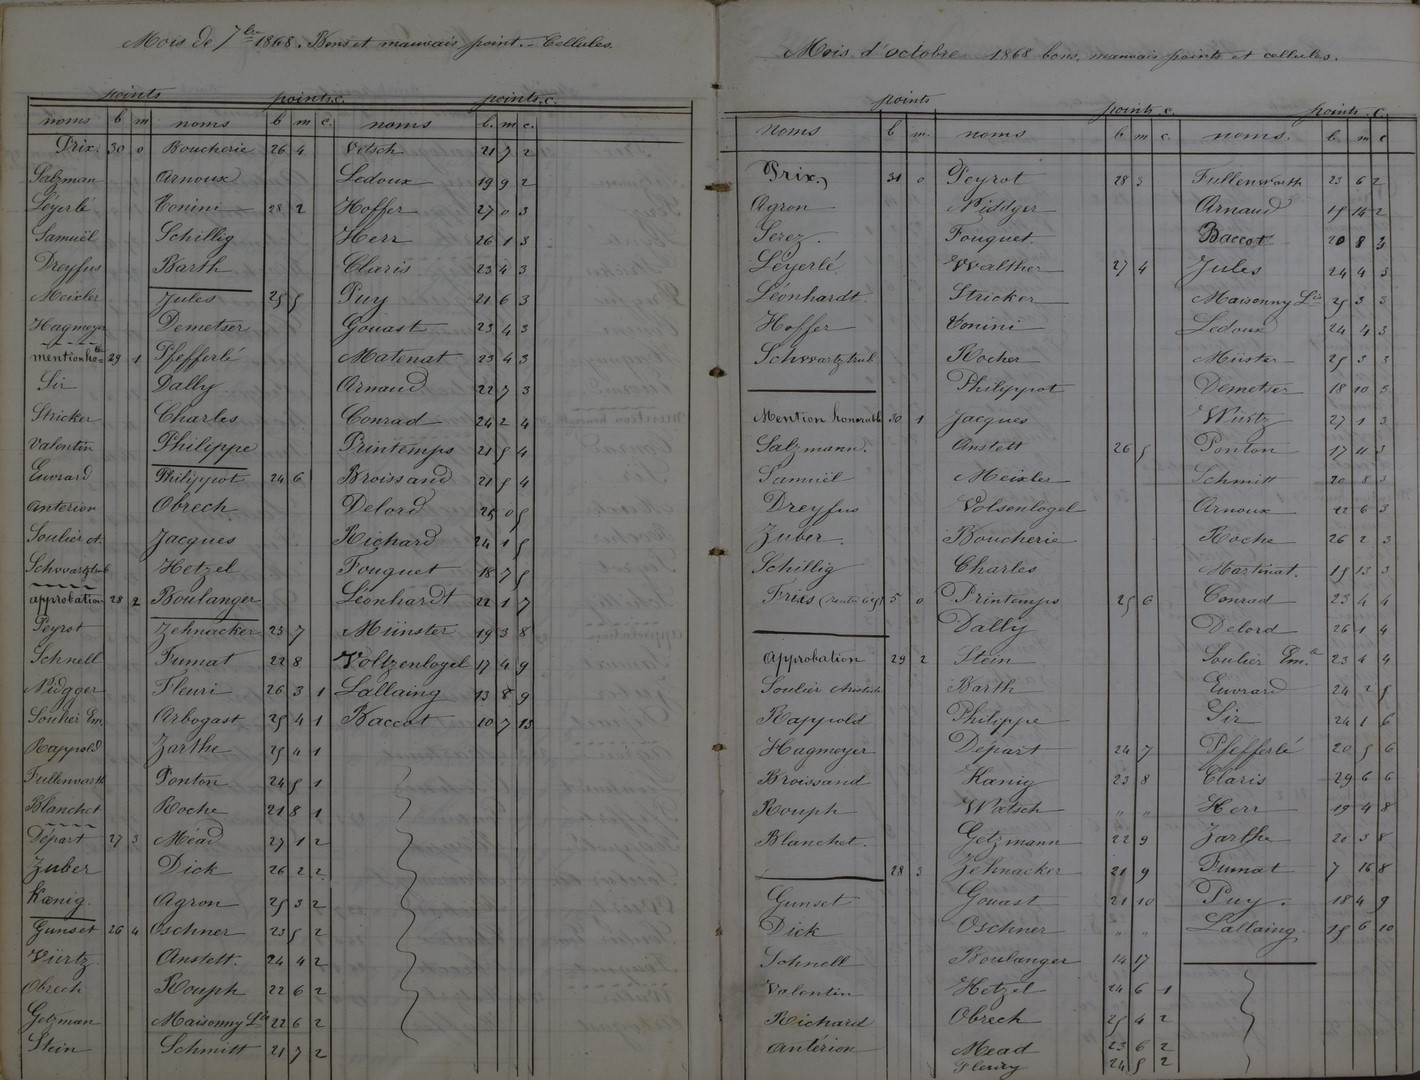 Mois de 7bre 1868. Bons et mauvais point. - Cellules.
points points.c. points.c.
noms b m noms b m c. noms b. m c.
Prix. 30 0 Boucherie 26 4 Vetsch 21 7 2
Salzman Arnoux Ledoux 19 9 2
Leyerlé Tonini 28 2 Hoffer 27 0 3
Samuël Schillig Herr 26 1 3
Dreyfus Barth Claris 23 4 3
Meixler Jules 25 5 Puy 21 6 3
Hagmeyer Demetser Gouast 23 4 3
mention ho 29 1 Pfefferlé Matenat 23 4 3
Sir Dally Arnaud 22 7 3
Stricker Charles Conrad 24 2 4
Valentin Philippe Printemps 21 5 4
Euvrard Philippot 24 6 Broissand 21 5 4
Anterion Obrech Delord 25 0 5
Soulier A. Jacques Richard 24 1 5
Schwartztrub Hetzel Fouquet 18 7 5
approbation 28 2 Boulanger Léonhardt 22 1 7
Peyrot Zehnacker 23 7 Münster 19 3 8
Schnell Fumat 22 8 Voltzenlogel 17 4 9
Nidgger Fleuri 26 3 1 Lallaing 13 8 9
Soulier Em. Arbogast 25 4 1 Baccot 10 7 13
Rappold Zarthe 25 4 1
Fullenvarth Ponton 24 5 1
Blanchet Roche 21 8 1
Départ 27 3 Méad 27 1 2
Zuber Dick 26 2 2
Kœnig. Agron 25 3 2
Gunset 26 4 Oschner 23 5 2
Würtz. Anstett. 24 4 2
Obrech Rouph 22 6 2
Getzman Maisonny Ls 22 6 2
Stein Schmitt 21 7 2
Mois d'octobre 1868 bons, mauvais points et cellules.
points points.c. points.c.
noms b m. noms b m c. noms. b. m c
Prix. 31 0 Peyrot 28 3 Fullenwarth 23 6 2
Agron Niddger Arnaud 15 14 2
Serez. Fouquet. Baccot 20 8 3
Leyerlé Walther 27 4 Jules 24 4 3
Léonhardt. Stricker Maisonny Ls 25 3 3
Hoffer Tonini Ledoux 24 4 3
Schwartztrub Rocher Münster 25 3 3
Philippot Demetser 18 10 3
Mention honorable 30 1 Jacques Würtz 27 1 3
Salzmann. Anstett 26 5 Ponton 17 11 3
Samuël Meixler Schmitt 20 8 3
Dreyfus Volsenlogel Arnoux 22 6 3
Zuber. Boucherie Roche 26 2 3
Schillig Charles Martinat. 15 13 3
Friès 5 0 Printemps 25 6 Conrad 23 4 4
Dally Delord 26 1 4
Approbation 29 2 Stein Soulier Em. 23 4 4
Soulier Aristide Barth Euvrard 24 2 5
Rappold Philippe Sir 24 1 6
Hagmeyer Départ 24 7 Pfefferlé 20 5 6
Broissand Kœnig 23 8 Claris 29 6 6
Rouph Wetsch " " Herr 19 4 8
Blanchet. Getzmann 22 9 Zarthe 20 3 8
28 3 Zehnacker 21 9 Fumat 7 16 8
Gunset Gouast 21 10 Puy. 18 4 9
Dick Oschner " " Lallaing. 15 6 10
Schnell Boulanger 14 17
Valentin Hetzel 24 6 1
Richard Obrech 25 4 2
Antérion Mead 23 6 2
Fleury 24 5 2